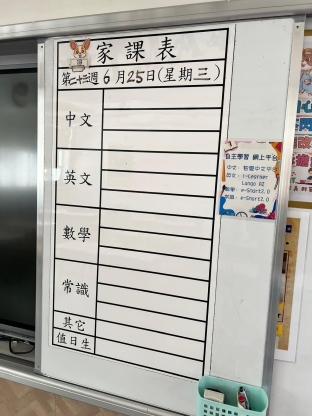 家課表
第二十三週 6月25日(星期三)
中文
英文
數學
常識
其它
值日生
自主學習 網上平台
中文: 智愛中文平台
英文: i-Learner
Lango RZ
數學: e-Smart2.0
常識: e-Smart2.0